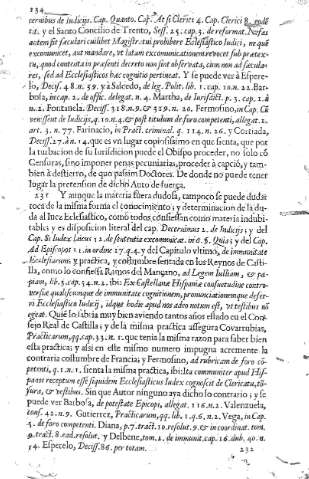 134
teribus de Iudicijs. Cap. Quanto. Cap. At si Clerici 4. Cap. Clerici 8.
y el Santo Concilio de Trento, Sess. 25. cap. 3. de reformat. Nefas
autem sit saeculari cuilibet Magistratui prohibere Ecclesiastico Iudici, ne quẽ
excommunicet, aut mandare, vt latam excommunicationem reuocet sub pratex-
tu, quod contenta in prasenti decreto non sint obseruata, cum non ad sæcula-
res, sed ad Ecclesiasticos hæc cognitio pertineat. Y se puede ver à Espere-
lo, Decis. 48. n. 59. y à Salcedo, de leg. Polit. lib. 1. cap. 10. n. 22. Bar-
bosa, in cap. 2. de offic. delegat. n. 4. Martha, de Iurisdict. p. 3. cap. 2. à
n. 2. Fontanela, Decis. 318. n. 9. & 329. n. 26. Fermosino, in Cap. Cũ
venissent de Iudicijs, q. 10. n. 4. & post titulum de foro competenti, allegat. 1.
art. 3. n. 77. Farinacio, in Pract. criminal. q. 114. n. 26. y Cortiada,
Decis. 27. à n. 14. que es vn lugar copiosissimo en que sienta, que por
la turbacion de su Iurisdicion puede el Obispo proceder, no solo cõ
Censuras, sino imponer penas pecuniarias, proceder à capciõ, y tam-
bien à destierro, de quo passim Doctores. De donde no puede tener
lugar la pretension de dichò Auto de fuerça.
231 Y aunque la materia fuera dudosa, tampoco se puede duda
toca de la misma forma el conocimiento; y determinacion de la du-
da al Iuez Eclesiastico, como todos confiessan como materia indubi-
table; y es disposicion literal del cap. Decernimus 2. de Iudicijs; y del
Cap. Si Iudex laicus 12. de sententia excomunicat. in 6. §. Quia; y del Cap.
y del Capitulo vltimo, de immunitate
Ecclesiarum; y practica, y costumbre sentada en los Reynos de Casti-
lla, como lo confiessa Ramos del Mançano, ad Legem Iuliam, & pa-
piam, lib. 3. cap. 54. n. 2. ibi: Ex Castellanæ Hispaniæ consuetudine contro-
uersiæ qualescumque de immunitate cognitionem, pronunciationemque defer-
ri Ecclesiastico Iudicij, idque hodie apud nos adeo notum est, vt testibus nõ
egeat. Que lo sabria muy bien aviendo tantos años estado en el Con-
sejo Real de Castilla; y de la misma practica assegura Covarrubias,
Practicarum, qq. cap. 33. n. 1. que tenia la misma razon para saber bien
esta practica; y assi en este mismo numero impugna acremente la
contraria costumbre de Francia; y Fermosino, ad rubricam de foro cõ-
petenti, q. 1. n. 1. sienta la misma practica, ibi: Ita communiter apud His-
panos receptum esse siquidem Ecclesiasticus Iudex cognoscet de Clericatu,
& vestibus. Sin que Autor ninguno aya dicho lo contrario; y se
puede ver Barbosa, de potestate Epicopi, allegat. 116. n. 2. Valenzuela,
cons. 42. n. 9. Gutierrez, Practicarum, qq. lib. 1. q. 6. n. 2. Vega, in Cap.
5. de foro competenti. Diana, p. 7. tract. 10. resolut. 9. & in coordinat. tom.
9. tract. 8. resolut. y Delbene, tom. 2. de immunit. cap. 16. dub. 40. n.
14. Esperelo, Decis. 86. per totam.
232